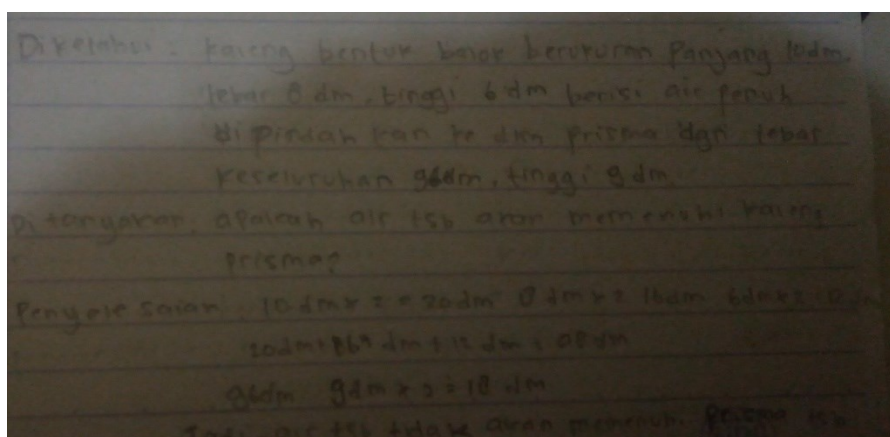 Diketahui : kaleng bentuk balok berukuran Panjang 10 dm,
lebar 8 dm, tinggi 6 dm berisi air penuh
di pindah kan ke dlm prisma dgn lebar
keseluruhan 96dm, tinggi 9 dm.
Di tanyakan, apakah air tsb akan memenuhi kaleng
prisma?
Penyele saian. 10 dm x 2 = 20 dm 8 dm x 2 16 dm 6 dm x 2 12 dm
20dm + dm + 12 dm =
96dm 9dm x 2 = 18 dm
Jadi air tsb tidak akan memenuhi prisma tsb